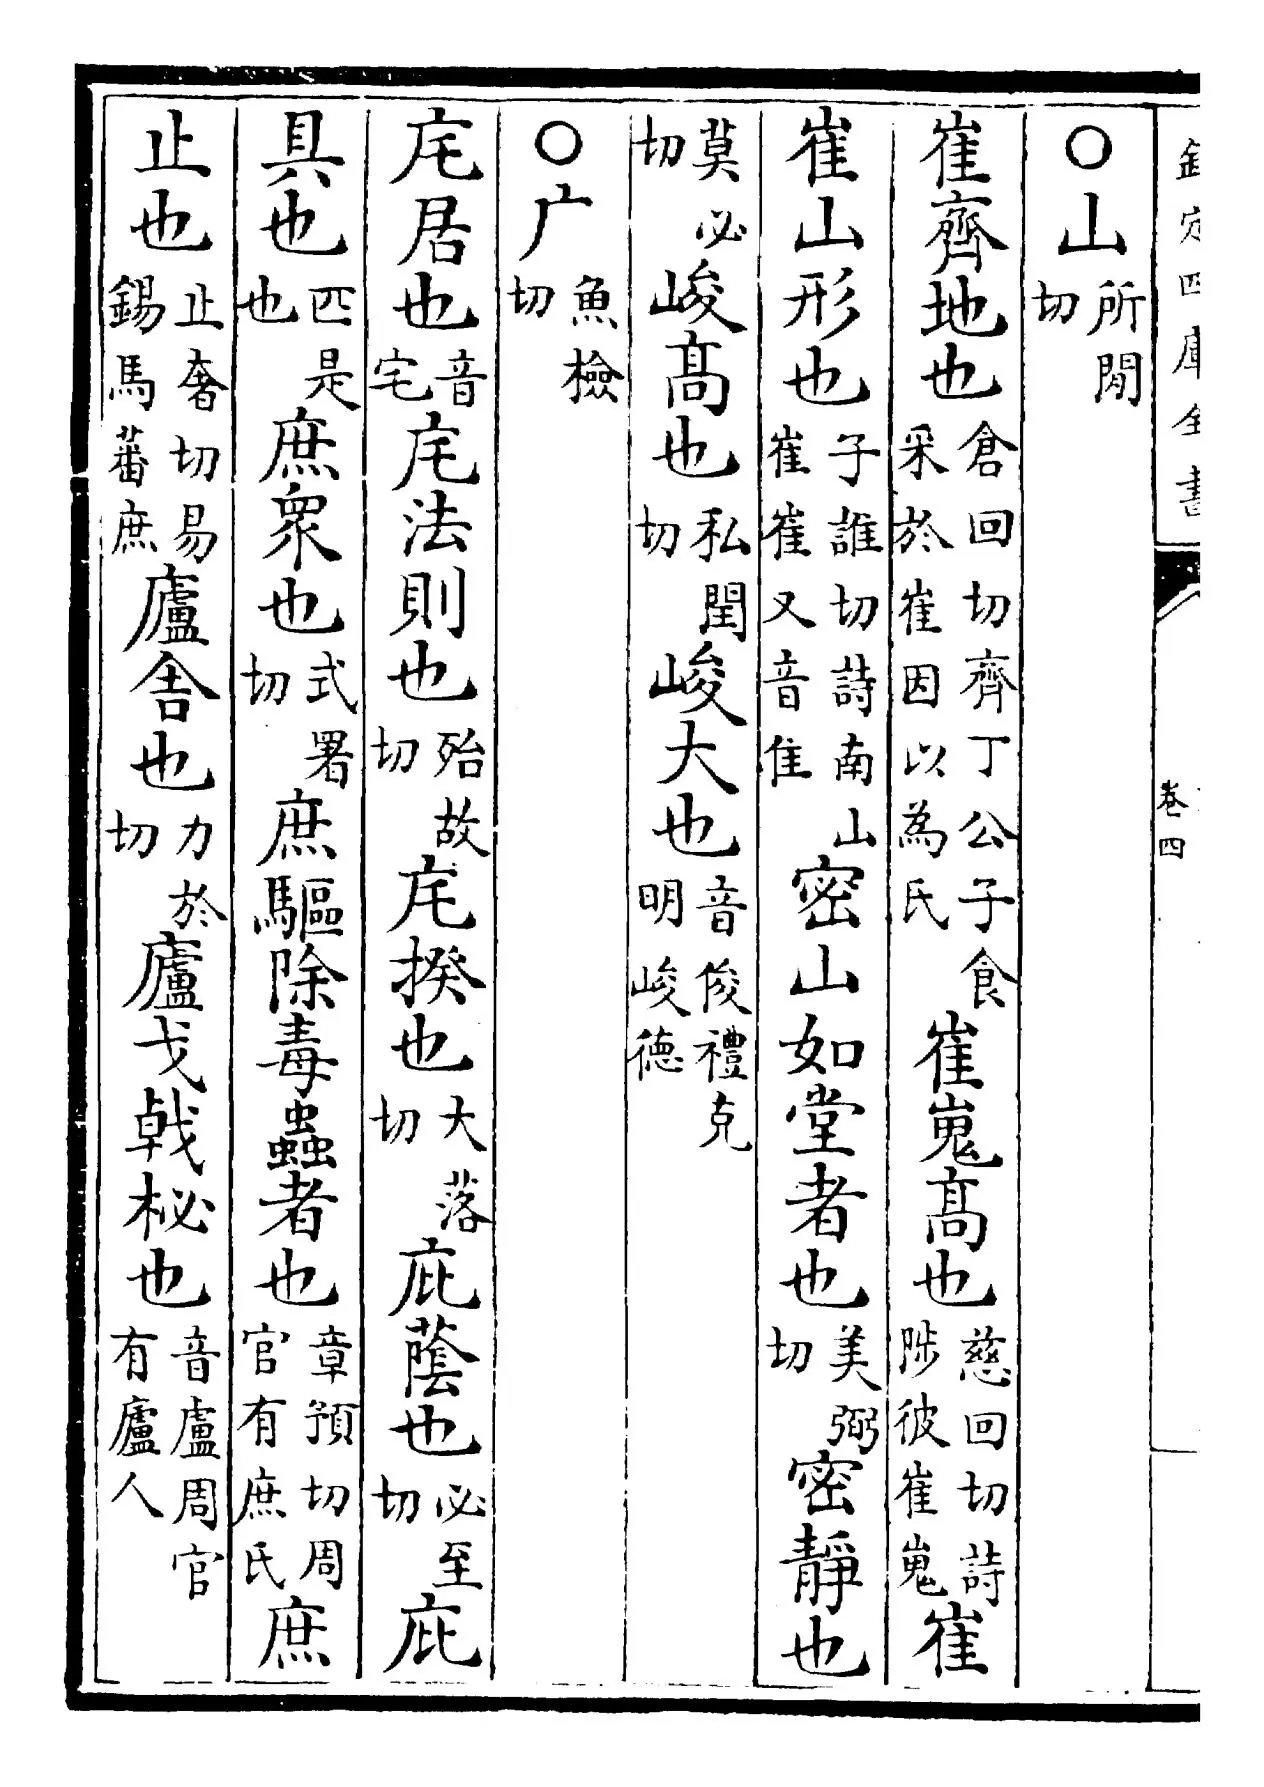 欽定四庫全書
卷四
○山所閒切
崔齊地也倉回切齊丁公子食采於崔因以為氏崔嵬高也慈回切詩陟彼崔嵬崔
崔山形也子誰切詩南山崔崔又音隹密山如堂者也美弼切密靜也
莫必切峻高也私閏切峻大也音俊禮克明峻德
○广魚檢切
庑居也音宅庑法則也殆故切庑揆也大落切庇蔭也必至切庇
具也匹是也庶衆也式署切庶驅除毒蟲者也章預切周官有庶氏庶
止也止奢切易錫馬蕃庶廬舍也力於切廬戈戟柲也音盧周官有廬人